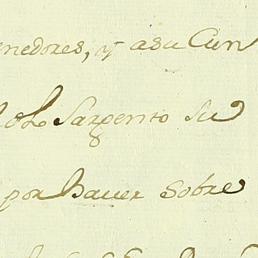 nedores, y asu Cun
Sargento su
por haver sobre